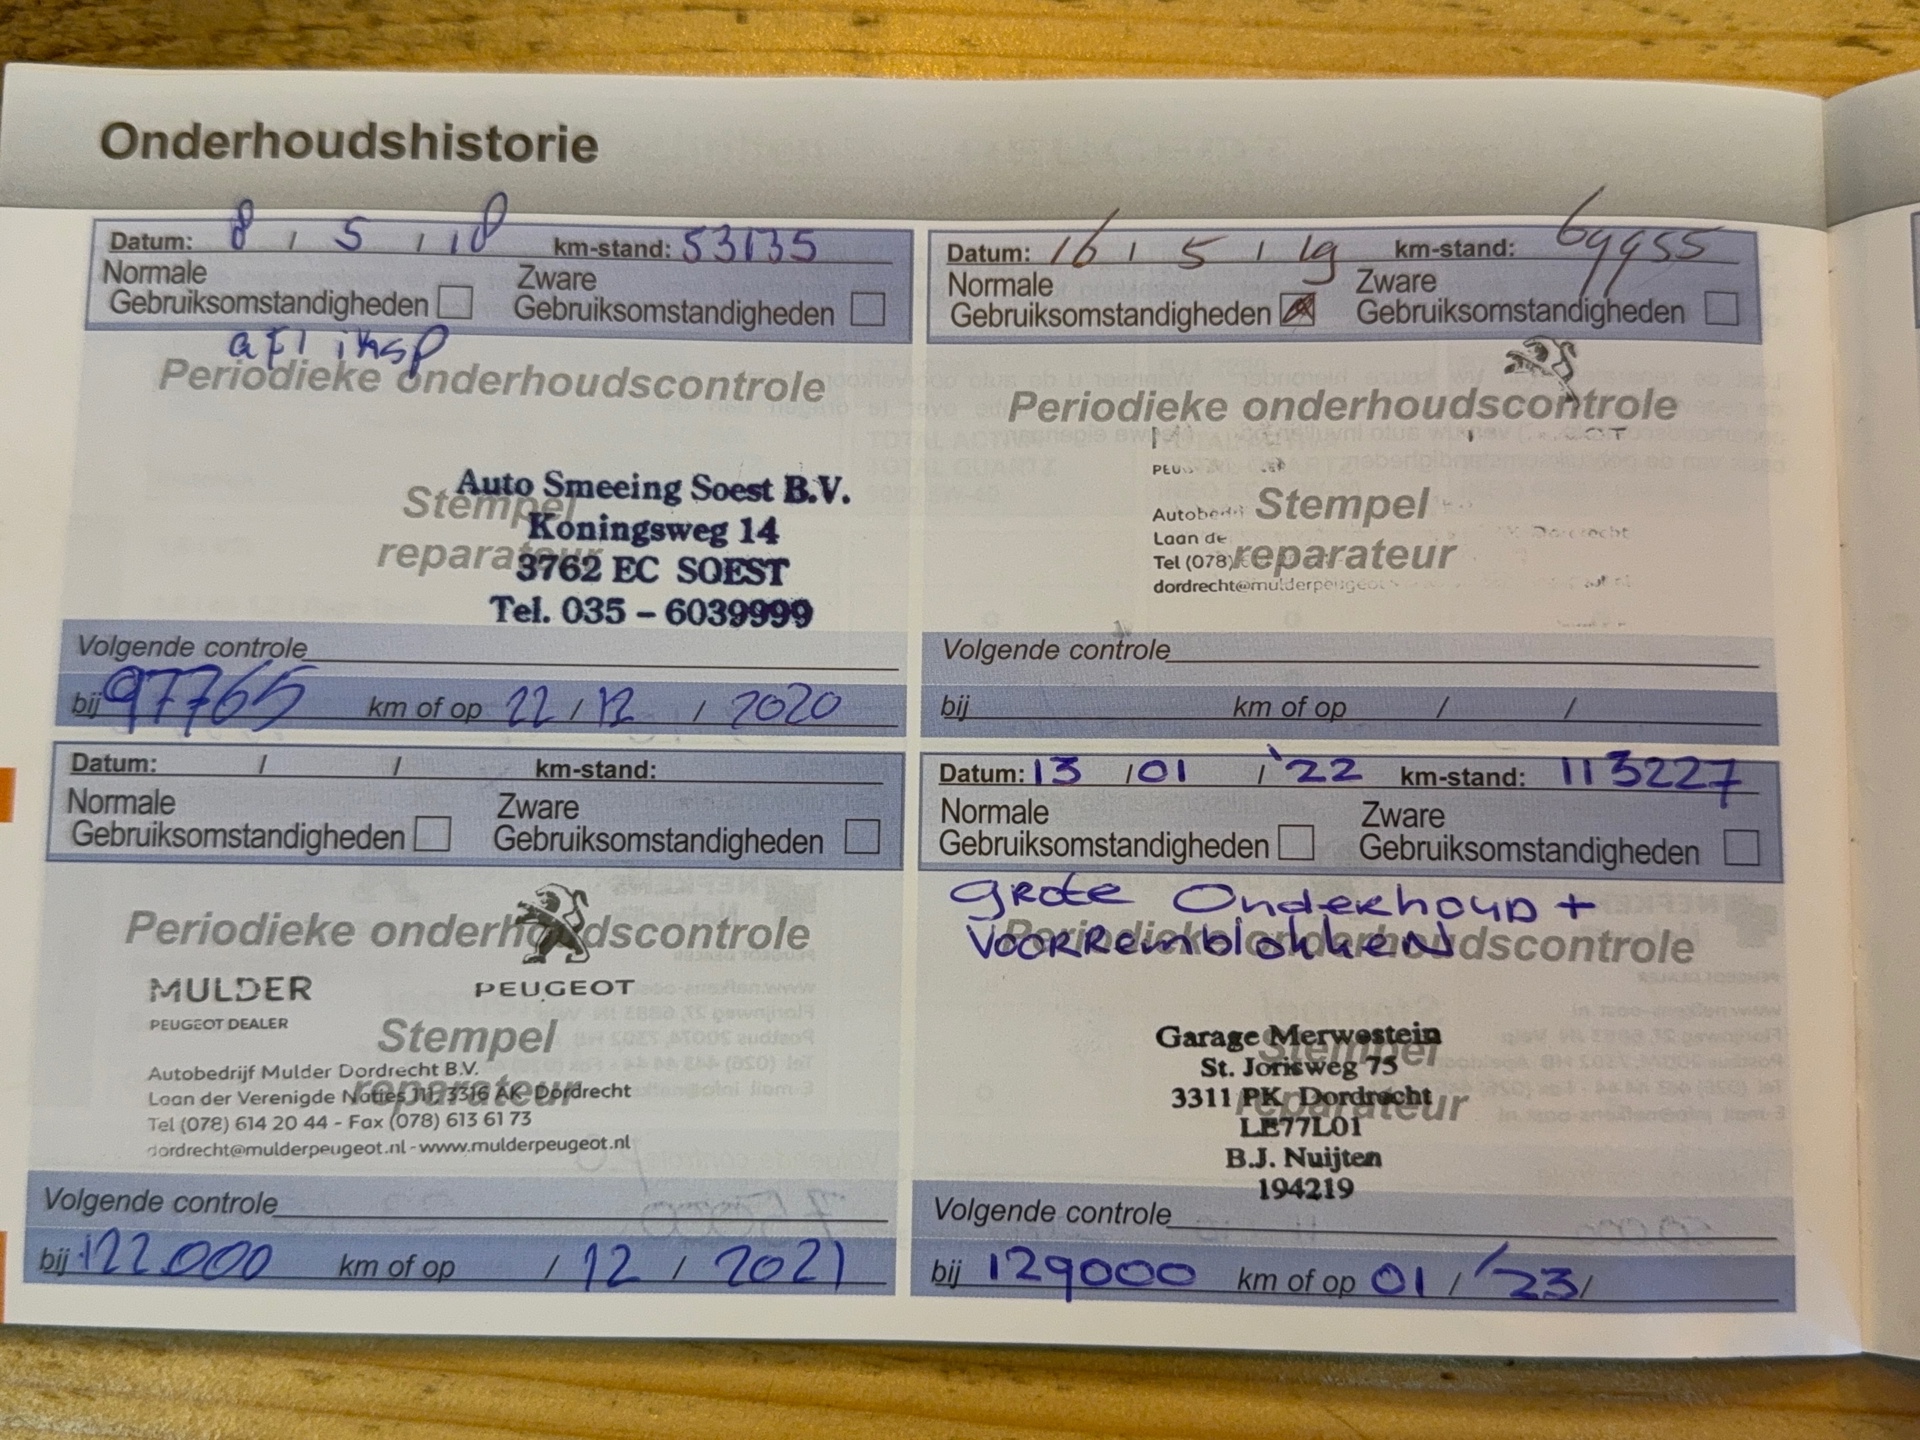 Onderhoudshistorie
Datum: 8 / 5 / 18 km-stand: 53135
Normale Gebruiksomstandigheden Zware Gebruiksomstandigheden
afl insp
Periodieke onderhoudscontrole
Stempel reparateur
Auto Smeeing Soest B.V.
Koningsweg 14
3762 EC SOEST
Tel. 035 – 6039999
Volgende controle
bij 97765 km of op 22 / 12 / 2020
Datum: 16 / 5 / 19 km-stand: 69955
Normale Gebruiksomstandigheden Zware Gebruiksomstandigheden
Periodieke onderhoudscontrole
Stempel
Laan de
reparateur
Tel (078)
dordrecht@mulderpeugeot
Volgende controle
bij km of op / /
Datum: / / km-stand:
Normale Gebruiksomstandigheden Zware Gebruiksomstandigheden
Periodieke onderhoudscontrole
MULDER PEUGEOT
PEUGEOT DEALER
Stempel
reparateur
Autobedrijf Mulder Dordrecht B.V.
Laan der Verenigde Naties 111, 3316 AK Dordrecht
Tel (078) 614 20 44 - Fax (078) 613 61 73
dordrecht@mulderpeugeot.nl - www.mulderpeugeot.nl
Volgende controle
bij 122000 km of op / 12 / 2021
Datum: 13 / 01 / '22 km-stand: 113227
Normale Gebruiksomstandigheden Zware Gebruiksomstandigheden
Grote Onderhoud +
Voorremblokken
Periodieke onderhoudscontrole
Stempel
reparateur
Garage Merwestein
St. Jorisweg 75
3311 PK Dordrecht
LE77L01
B.J. Nuijten
194219
Volgende controle
bij 129000 km of op 01 / '23 /